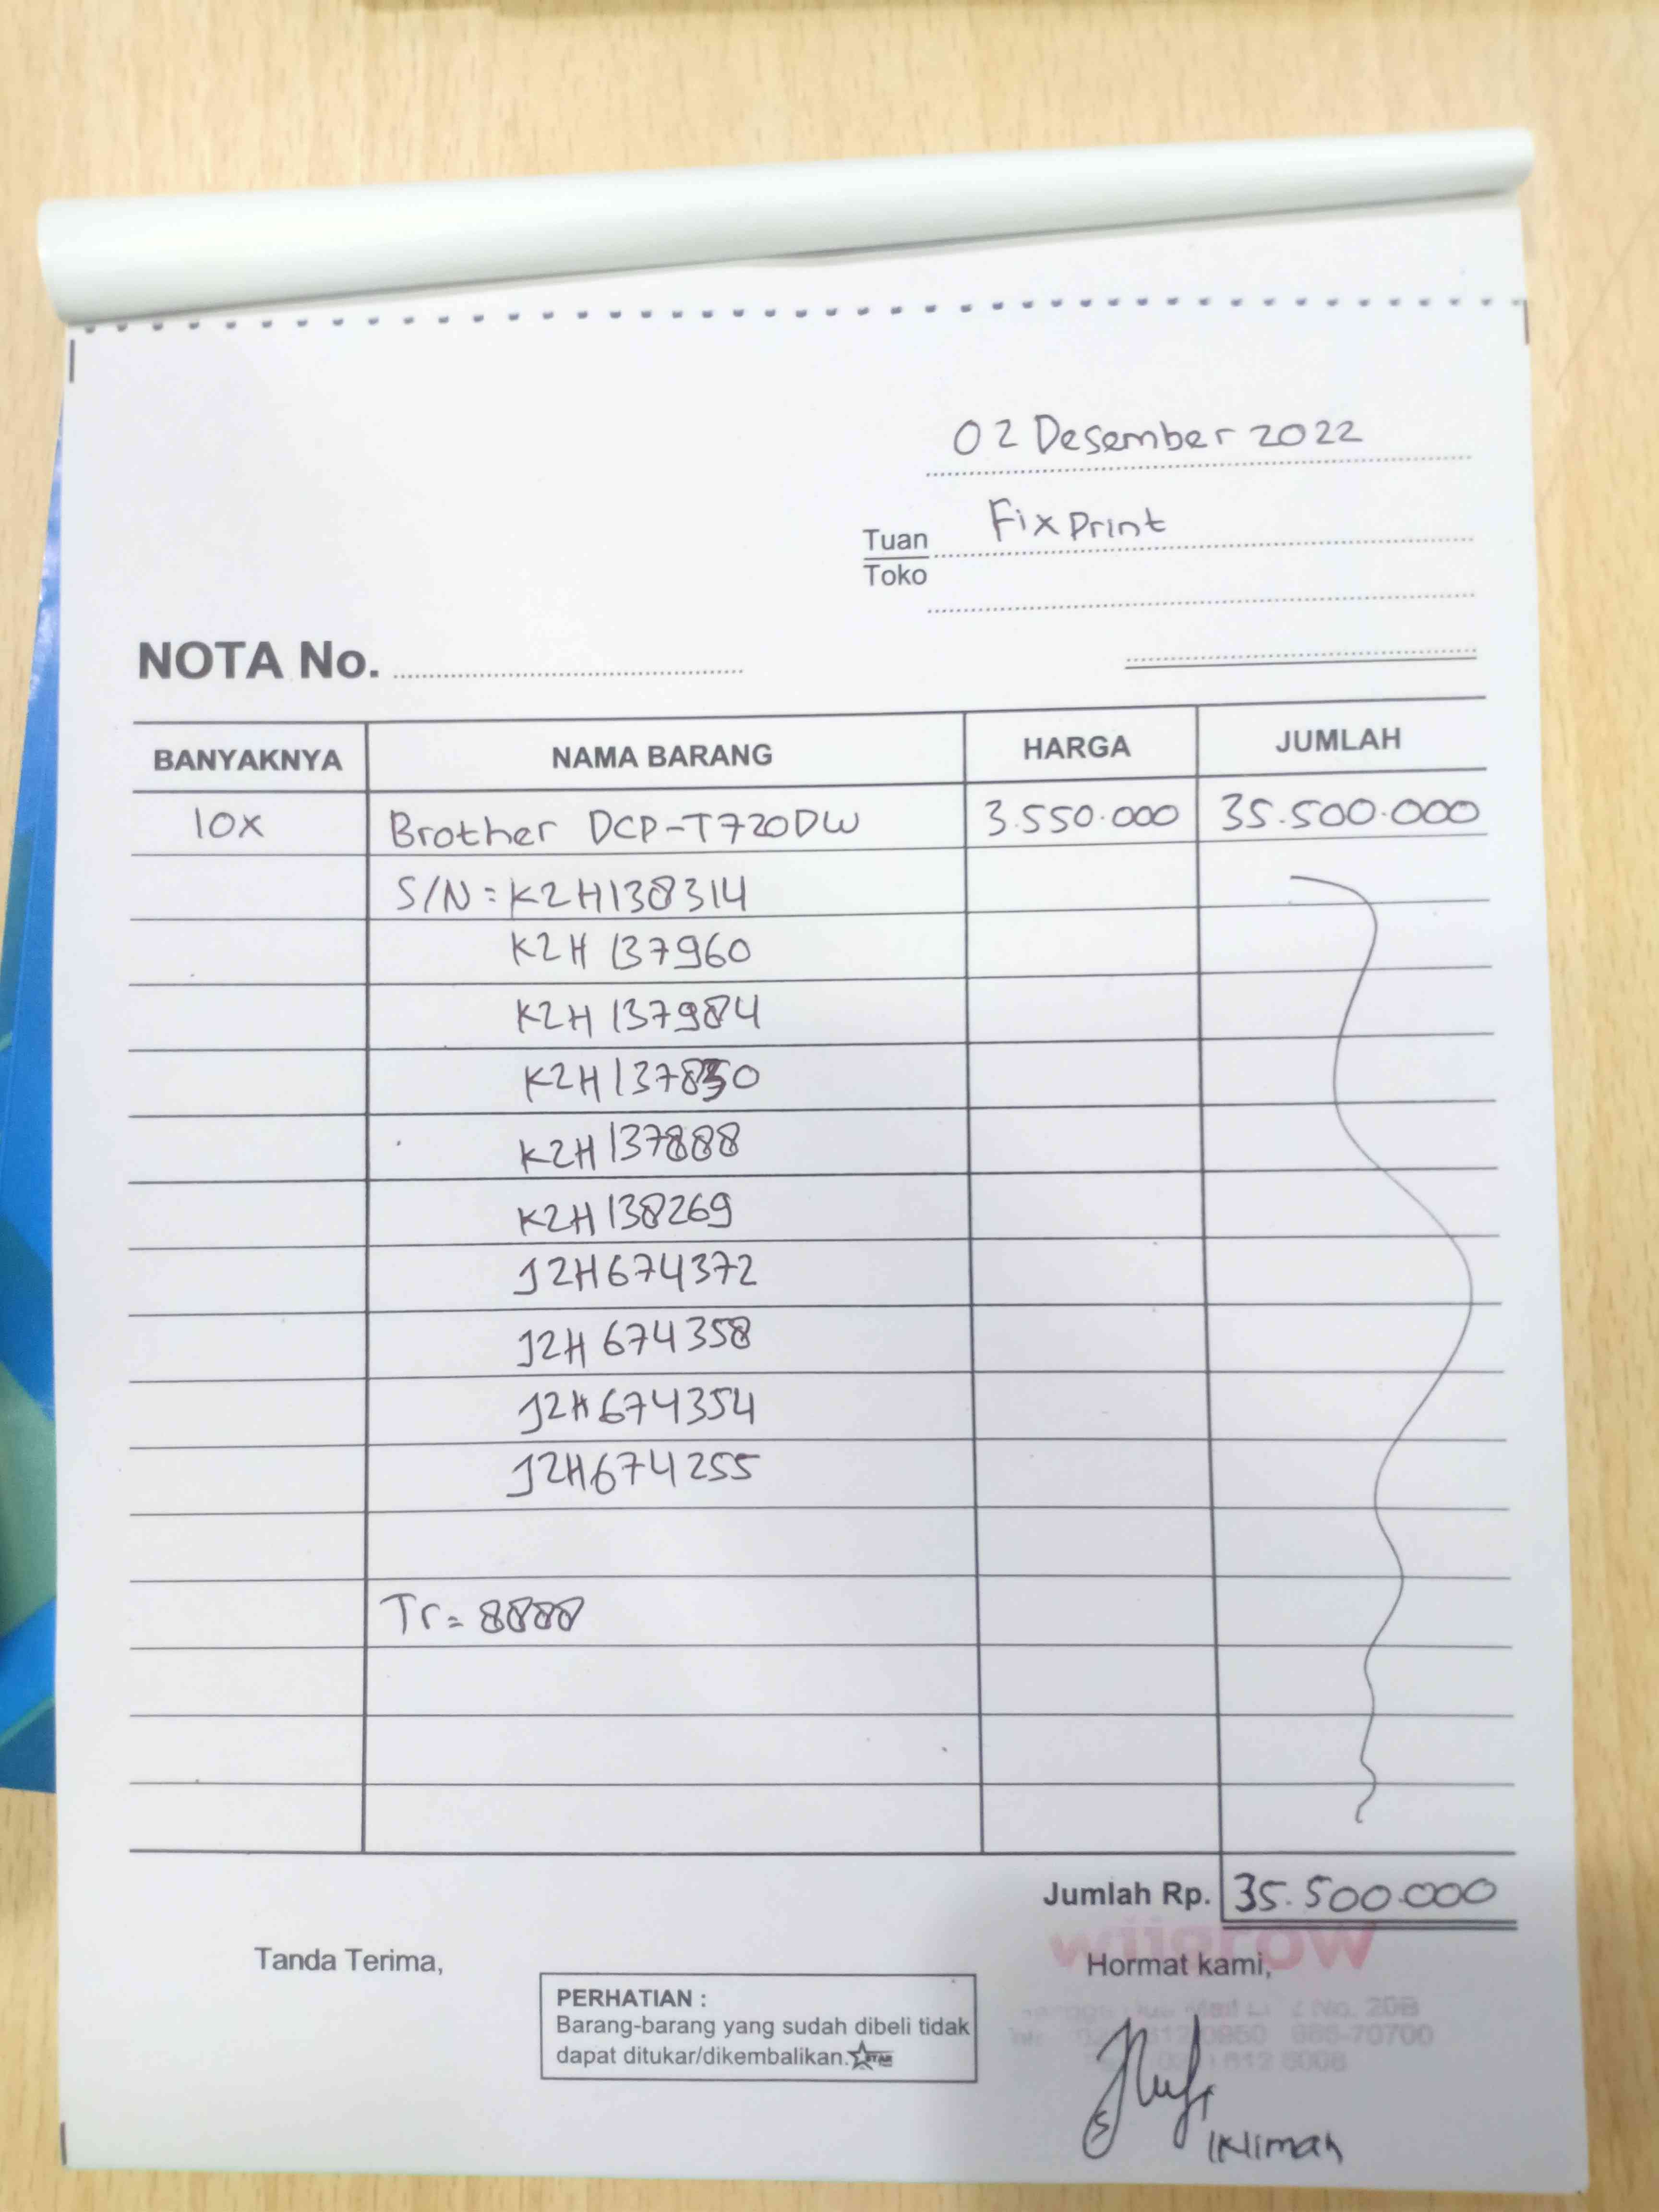 02 Desember 2022
Tuan Fixprint
Toko
NOTA No.
BANYAKNYA NAMA BARANG HARGA JUMLAH
10x Brother DCP-T720DW 3.550.000 35.500.000
S/N = K2H138314
K2H137960
K2H137984
K2H137850
K2H137888
K2H138269
J2H674372
J2H674358
J2H674354
J2H674255
Tr = 8888
Jumlah Rp. 35.500.000
Tanda Terima,
Hormat kami,
PERHATIAN :
Barang-barang yang sudah dibeli tidak
dapat ditukar/dikembalikan. STAR
No. 20B
70700
Iklimah